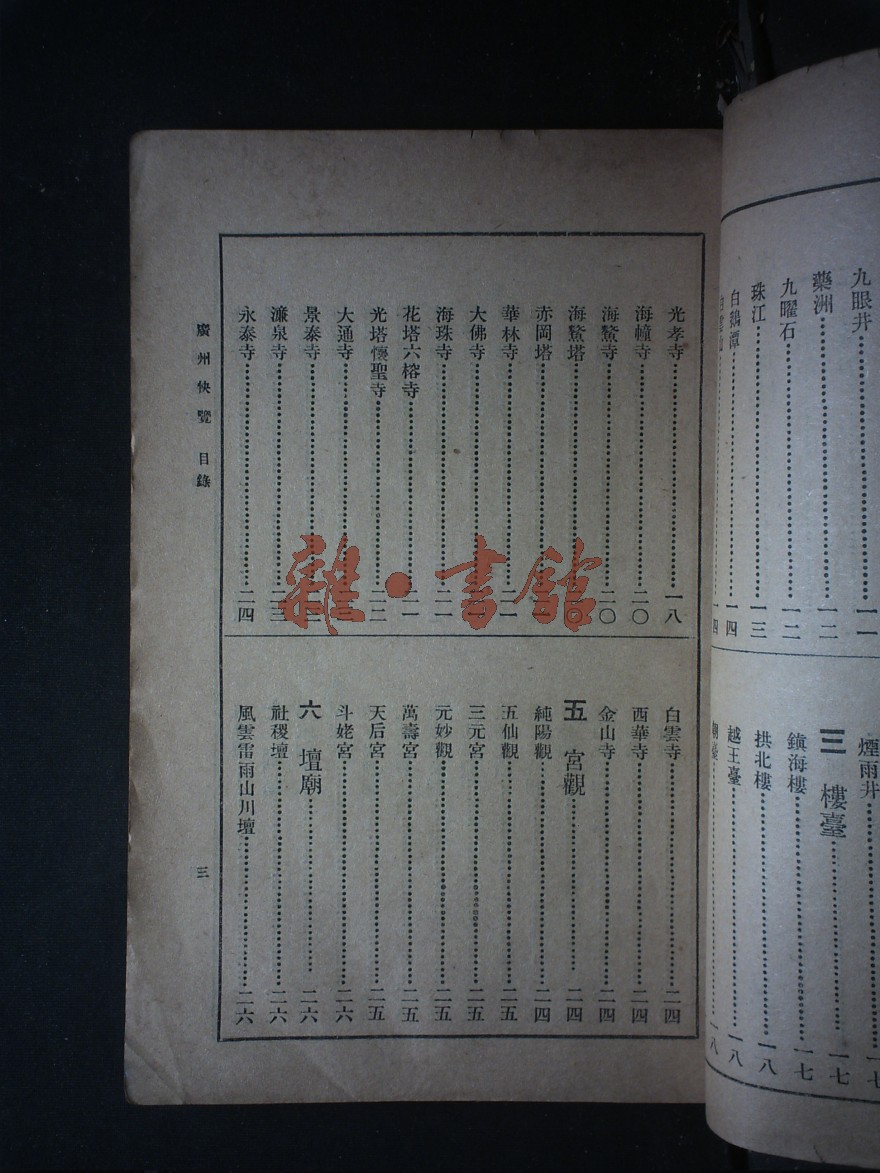 九眼井……一一
藥洲……一二
九曜石……一二
珠江……一三
白鵝潭……一四
一四
煙雨井……一七
三　樓臺……一七
鎮海樓……一七
拱北樓……一八
越王臺……一八
一八
光孝寺……一八
海幢寺……二〇
海鰲寺……二〇
海鰲塔……二〇
赤岡塔……
華林寺……二一
大佛寺……
海珠寺……二一
花塔六榕寺……二一
光塔懷聖寺……二二
大通寺……
景泰寺……
濂泉寺……二三
永泰寺……二四
白雲寺……二四
西華寺……二四
金山寺……二四
五　宮觀……二四
純陽觀……二四
五仙觀……二五
三元宮……二五
元妙觀……二五
萬壽宮……二五
天后宮……二五
斗姥宮……二六
六　壇廟……二六
社稷壇……二六
風雲雷雨山川壇……二六
廣州快覽　目錄
三
雜·書館